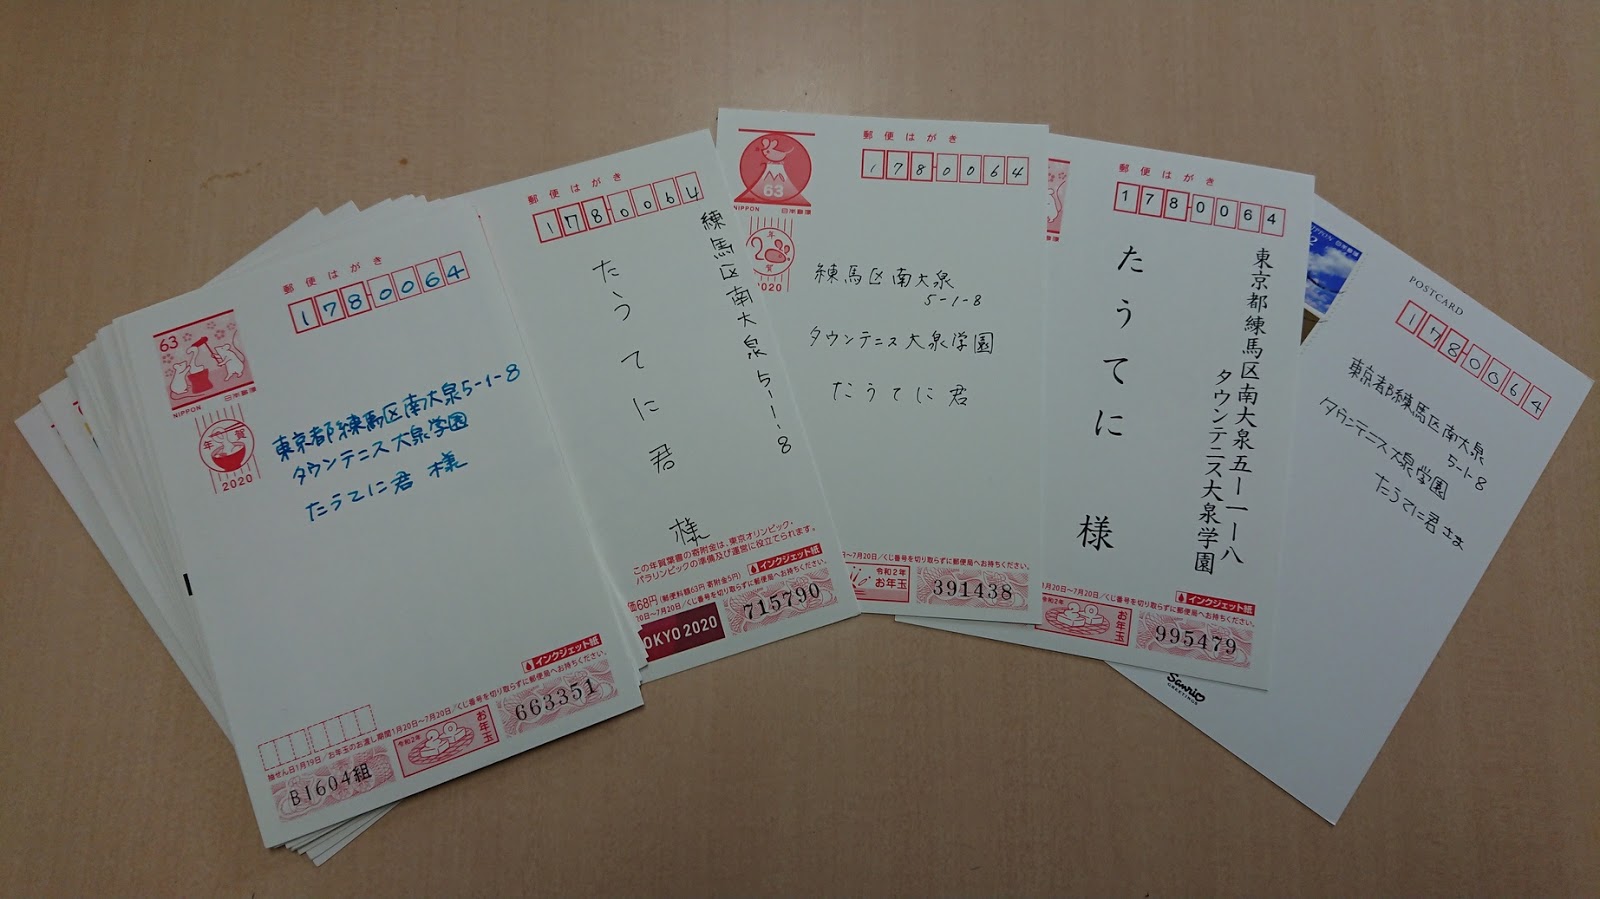 郵便はがき
1780064
63
NIPPON 日本郵便
年賀
2020
東京都練馬区南大泉5-1-8
タウンテニス大泉学園
たうてに君 様
インクジェット紙
抽せん日1月19日/お年玉のお渡し期間1月20日~7月20日/くじ番号を切り取らずに郵便局へお持ちください。
B1604組
令和2年
お年玉
663351
郵便はがき
1780064
練馬区南大泉5-1-8
たうてに君
様
この年賀葉書の寄附金は、東京オリンピック・
パラリンピックの準備及び運営に役立てられます。
インクジェット紙
価68円(郵便料額63円 寄附金5円)
20日~7月20日/くじ番号を切り取らずに郵便局へお持ちください。
OKYO 2020
715790
郵便はがき
1780064
63
NIPPON 日本郵便
年賀
2020
練馬区南大泉
5-1-8
タウンテニス大泉学園
たうてに君
インクジェット紙
20日~7月20日/くじ番号を切り取らずに郵便局へお持ちください。
令和2年
お年玉
391438
郵便はがき
1780064
東京都練馬区南大泉五ー一ー八
タウンテニス大泉学園
たうてに
様
インクジェット紙
月20日~7月20日/くじ番号を切り取らずに郵便局へお持ちください。
令和2年
お年玉
995479
NIPPON 日本郵便
2
POSTCARD
1780064
東京都練馬区南大泉
5-1-8
タウンテニス大泉学園
たうてに君さま
Sanrio
GREETINGS